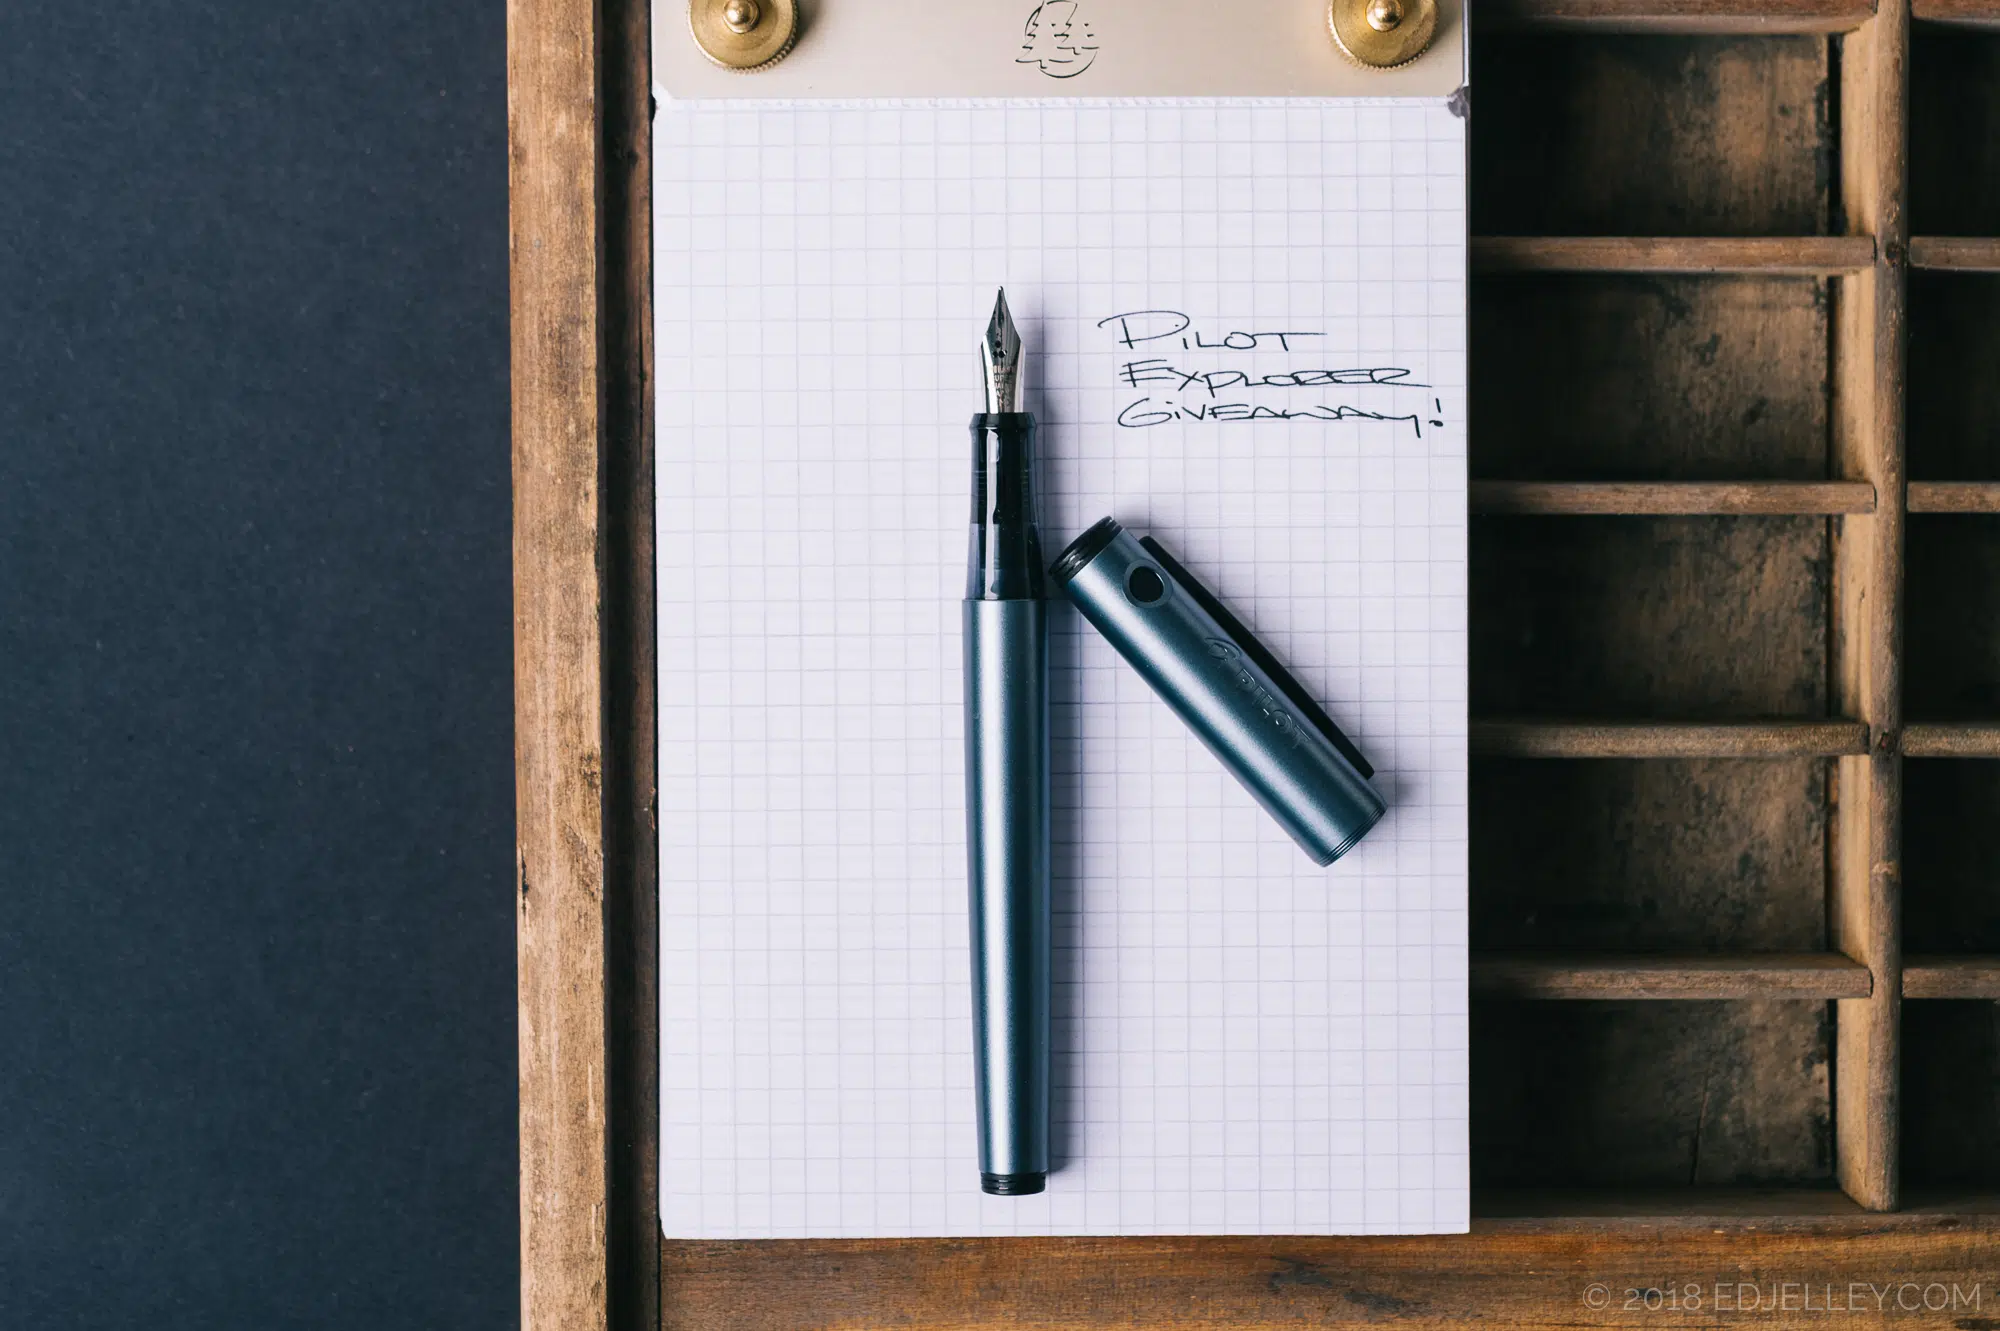 PILOT
EXPLORER
GIVEAWAY!
PILOT
© 2018 EDJELLEY.COM